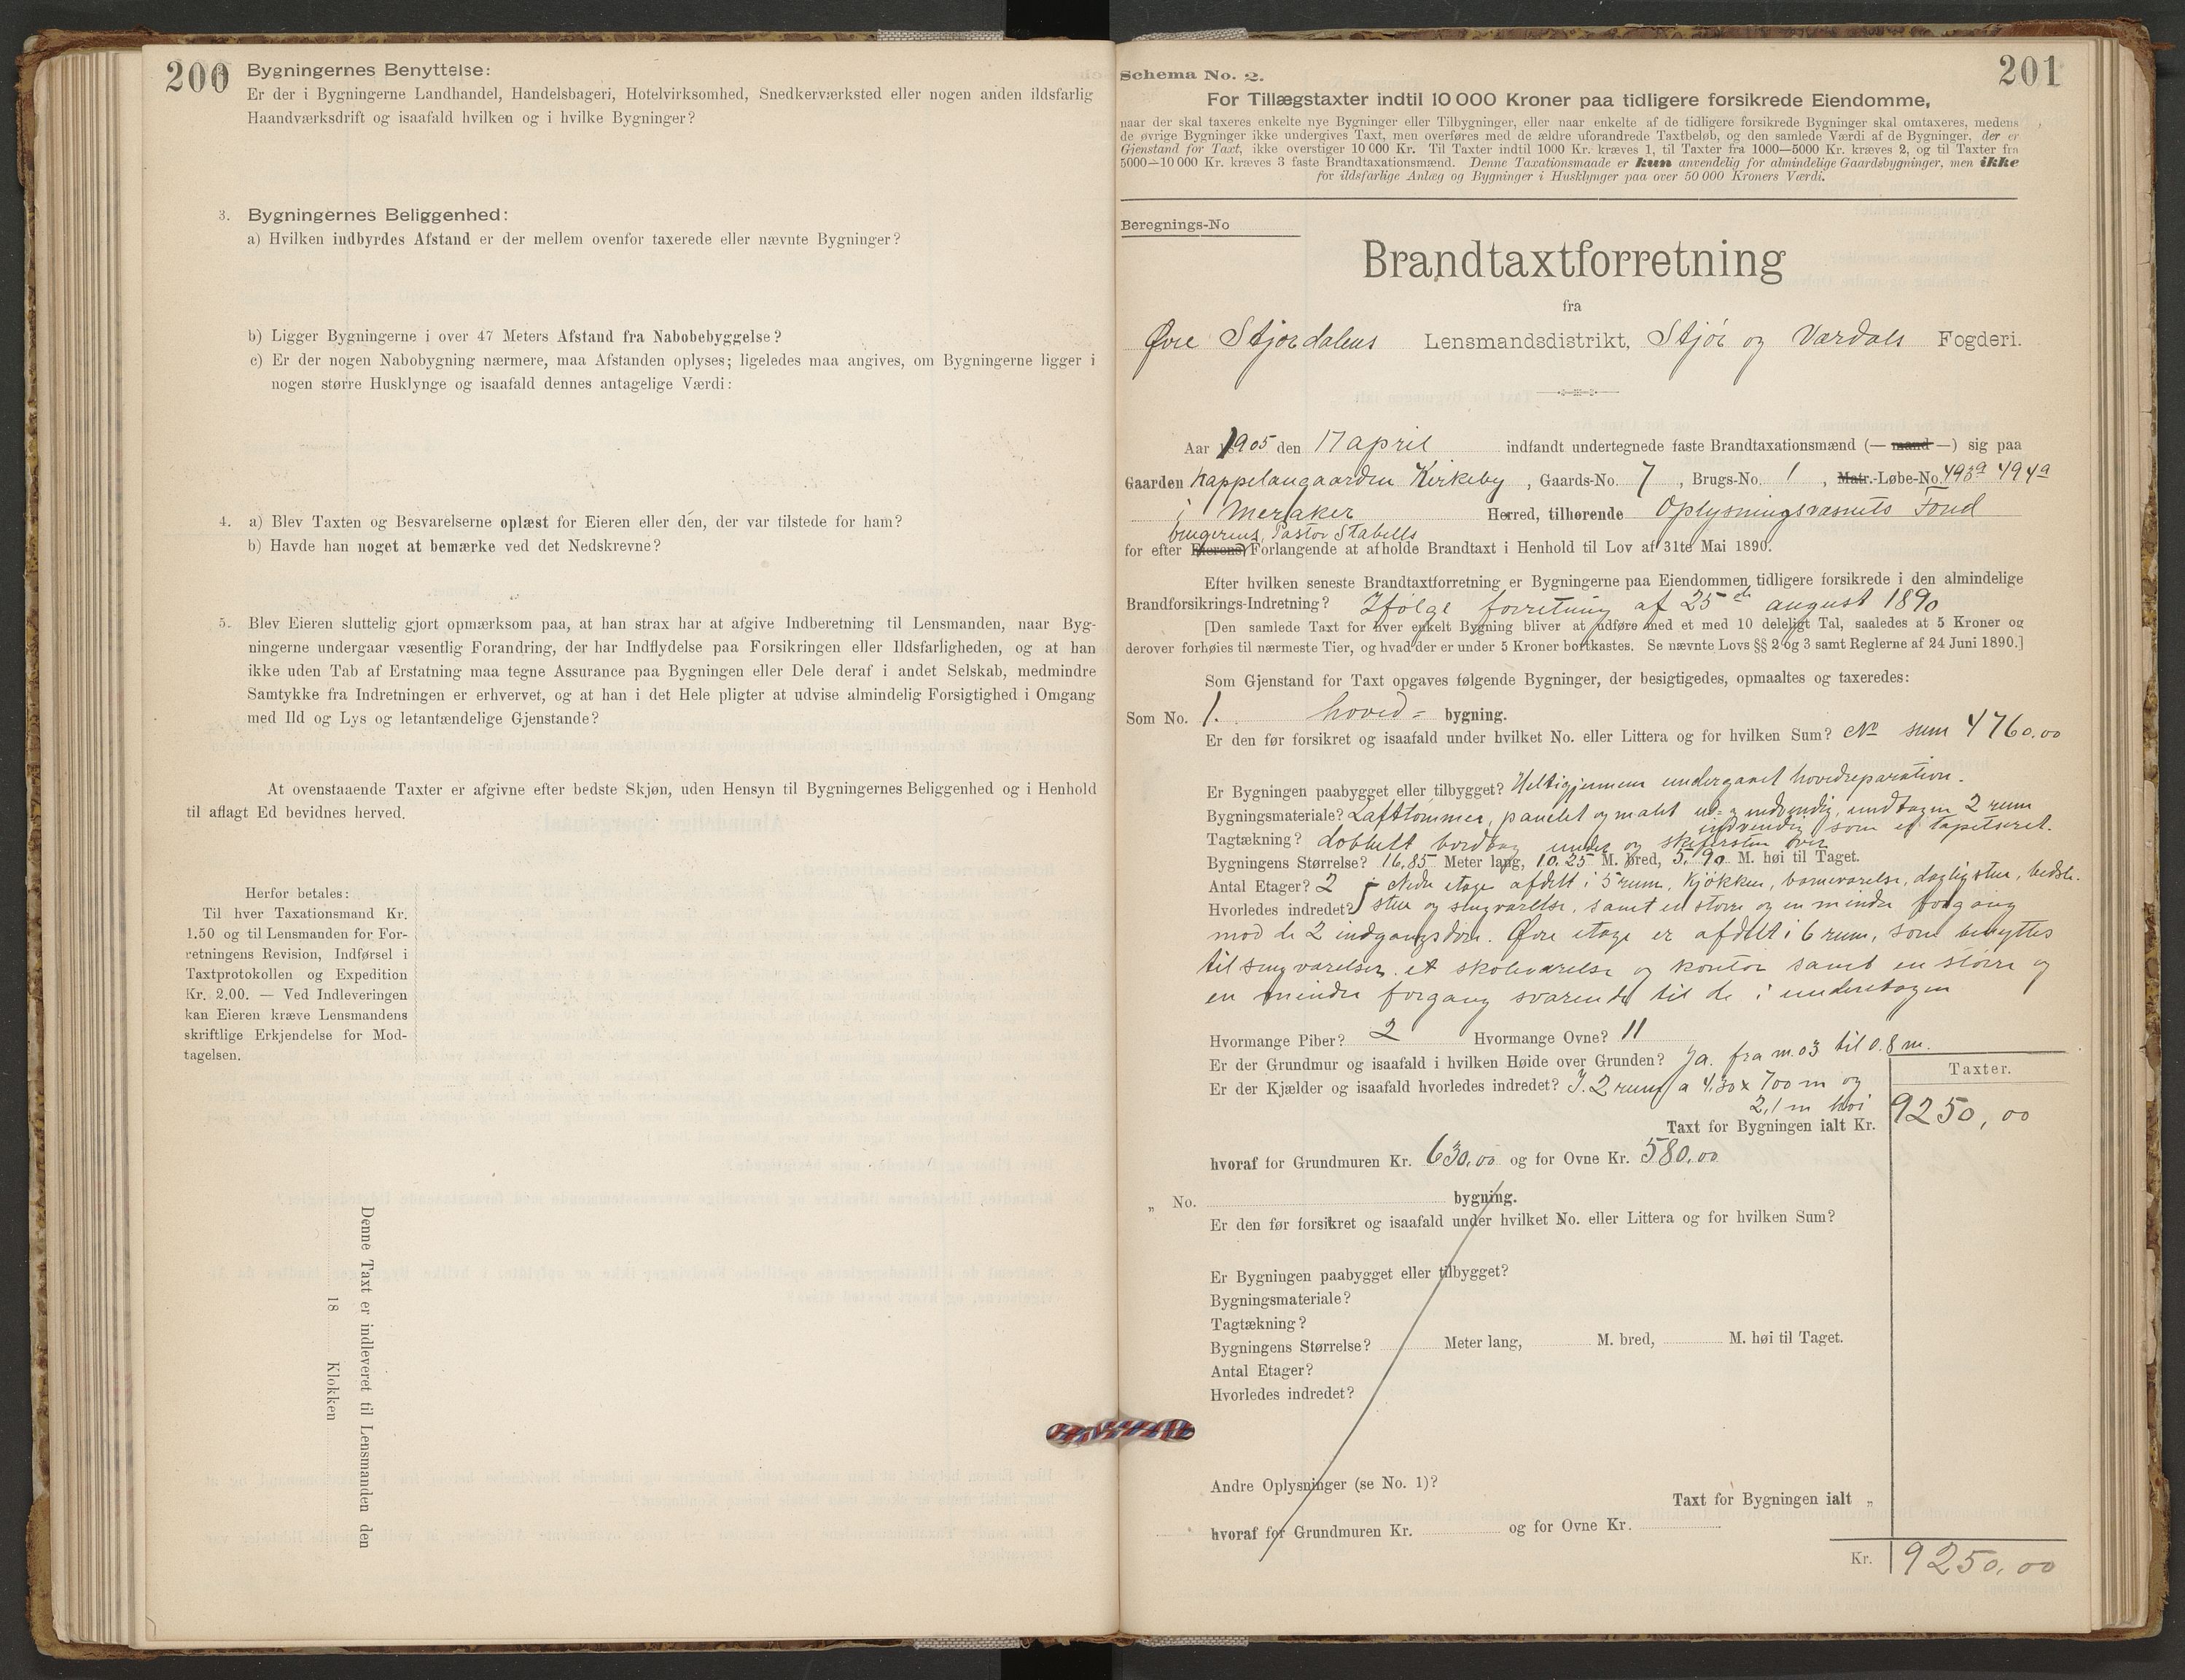 200
Bygningernes Benyttelse:
Er der i Bygningerne Landhandel, Handelsbageri, Hotelvirksomhed, Snedkerværksted eller nogen anden ildsfarlig
Haandværksdrift og isaafald hvilken og i hvilke Bygninger?
3. Bygningernes Beliggenhed:
a) Hvilken indbyrdes Afstand er der mellem ovenfor taxerede eller nævnte Bygninger?
b) Ligger Bygningerne i over 47 Meters Afstand fra Nabobebyggelse?
c) Er der nogen Nabobygning nærmere, maa Afstanden oplyses; ligeledes maa angives, om Bygningerne ligger i
nogen større Husklynge og isaafald dennes antagelige Værdi:
4. a) Blev Taxten og Besvarelserne oplæst for Eieren eller den, der var tilstede for ham?
b) Havde han noget at bemærke ved det Nedskrevne?
5. Blev Eieren sluttelig gjort opmærksom paa, at han strax har at afgive Indberetning til Lensmanden, naar Byg-
ningerne undergaar væsentlig Forandring, der har Indflydelse paa Forsikringen eller Ildsfarligheden, og at han
ikke uden Tab af Erstatning maa tegne Assurance paa Bygningen eller Dele deraf i andet Selskab, medmindre
Samtykke fra Indretningen er erhvervet, og at han i det Hele pligter at udvise almindelig Forsigtighed i Omgang
med Ild og Lys og letantændelige Gjenstande?
At ovenstaaende Taxter er afgivne efter bedste Skjøn, uden Hensyn til Bygningernes Beliggenhed og i Henhold
til aflagt Ed bevidnes herved.
Herfor betales:
Til hver Taxationsmand Kr.
1.50 og til Lensmanden for For-
retningens Revision, Indførsel i
Taxtprotokollen og Expedition
Kr. 2.00. — Ved Indleveringen
kan Eieren kræve Lensmandens
skriftlige Erkjendelse for Mod-
tagelsen.
Denne Taxt er indleveret til Lensmanden den
18 Klokken
201
Schema No. 2.
For Tillægstaxter indtil 10 000 Kroner paa tidligere forsikrede Eiendomme,
naar der skal taxeres enkelte nye Bygninger eller Tilbygninger, eller naar enkelte af de tidligere forsikrede Bygninger skal omtaxeres, medens
de øvrige Bygninger ikke undergives Taxt, men overføres med de ældre uforandrede Taxtbeløb, og den samlede Værdi af de Bygninger, der er
Gjenstand for Taxt, ikke overstiger 10 000 Kr. Til Taxter indtil 1000 Kr. kræves 1, til Taxter fra 1000—5000 Kr. kræves 2, og til Taxter fra
5000—10 000 Kr. kræves 3 faste Brandtaxationsmænd. Denne Taxationsmaade er kun anvendelig for almindelige Gaardsbygninger, men ikke
for ildsfarlige Anlæg og Bygninger i Husklynger paa over 50 000 Kroners Værdi.
Beregnings-No
Brandtaxtforretning
fra
Øvre Stjørdalens Lensmandsdistrikt, Stjør og Værdals Fogderi.
Aar 1905 den 17 april indfandt undertegnede faste Brandtaxationsmænd (— mand —) sig paa
Gaarden Kappelangaarden Kirkeby, Gaards-No. 7, Brugs-No. 1, Matr.-Løbe-No. 493a 494a
i Meraker Herred, tilhørende Oplysningsvæsnets Fond
brugerens, Pastor Stabells
for efter Eierens Forlangende at afholde Brandtaxt i Henhold til Lov af 31te Mai 1890.
Efter hvilken seneste Brandtaxtforretning er Bygningerne paa Eiendommen tidligere forsikrede i den almindelige
Brandforsikrings-Indretning? Ifølge forretning af 25de august 1890
[Den samlede Taxt for hver enkelt Bygning bliver at udføre med et med 10 deleligt Tal, saaledes at 5 Kroner og
derover forhøies til nærmeste Tier, og hvad der er under 5 Kroner bortkastes. Se nævnte Lovs §§ 2 og 3 samt Reglerne af 24 Juni 1890.]
Som Gjenstand for Taxt opgaves følgende Bygninger, der besigtigedes, opmaaltes og taxeredes:
Som No. 1. hoved- bygning.
Er den før forsikret og isaafald under hvilket No. eller Littera og for hvilken Sum? No sum 4760.00
Er Bygningen paabygget eller tilbygget? Heltigjennem undergaaet hovedreparation.
Bygningsmateriale? Lafttømmer, panelet og malet ud- og indvendig, undtagen 2 rum
indvendig som er tapetseret.
Tagtækning? dobbelt bordtag under og skifersten over
Bygningens Størrelse? 16,85 Meter lang, 10.25 M. bred, 5.90 M. høi til Taget.
Antal Etager? 2 Nedre etage afdelt i 5 rum, kjøkken, barneværelse, dagligstue, bedste-
Hvorledes indredet? stue og sengværelse, samt en større og en mindre forgang
mod de 2 indgangsdøre. Øvre etage er afdelt i 6 rum, som benyttes
til sengværelser, et skoleværelse og kontor samt en større og
en mindre forgang svarende til de i underetagen
Hvormange Piber? 2 Hvormange Ovne? 11
Er der Grundmur og isaafald i hvilken Høide over Grunden? Ja. fra m. 03 til 0.8 m.
Er der Kjælder og isaafald hvorledes indredet? I 2 rum a 4,30 x 700 m og
2,1 m høi
Taxter.
Taxt for Bygningen ialt Kr. 9250,00
hvoraf for Grundmuren Kr. 630,00 og for Ovne Kr. 580,00
„ No. bygning.
Er den før forsikret og isaafald under hvilket No. eller Littera og for hvilken Sum?
Er Bygningen paabygget eller tilbygget?
Bygningsmateriale?
Tagtækning?
Bygningens Størrelse? Meter lang, M. bred, M. høi til Taget.
Antal Etager?
Hvorledes indredet?
Andre Oplysninger (se No. 1)?
Taxt for Bygningen ialt „
hvoraf for Grundmuren Kr. og for Ovne Kr.
Kr. 9250,00